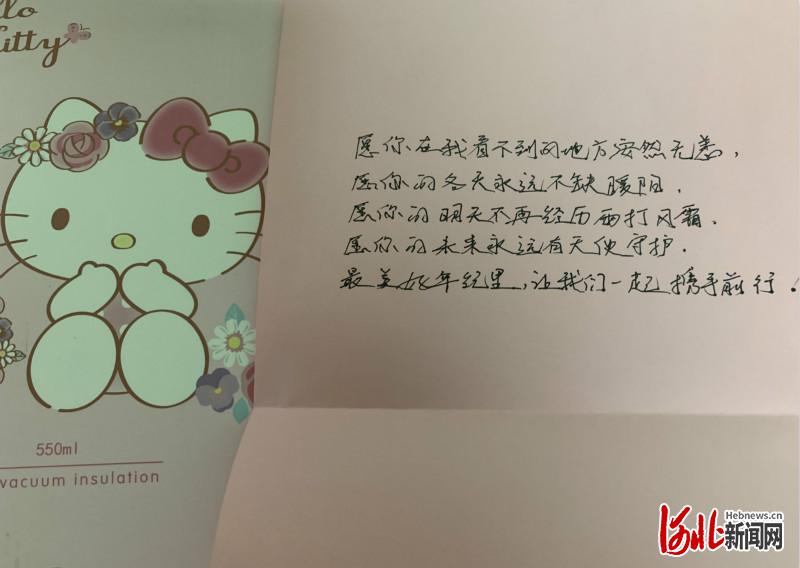 llo
Kitty
愿你在我看不到的地方安然无恙，
愿你的冬天永远不缺暖阳，
愿你的明天不再经历雨打风霜，
愿你的未来永远有天使守护。
最美好年纪里，让我们一起携手前行！
550ml
vacuum insulation
河北新闻网
Hebnews.cn